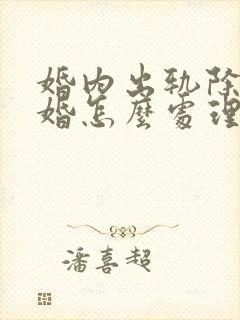 婚内出轨除
婚怎麼處理
潘喜超